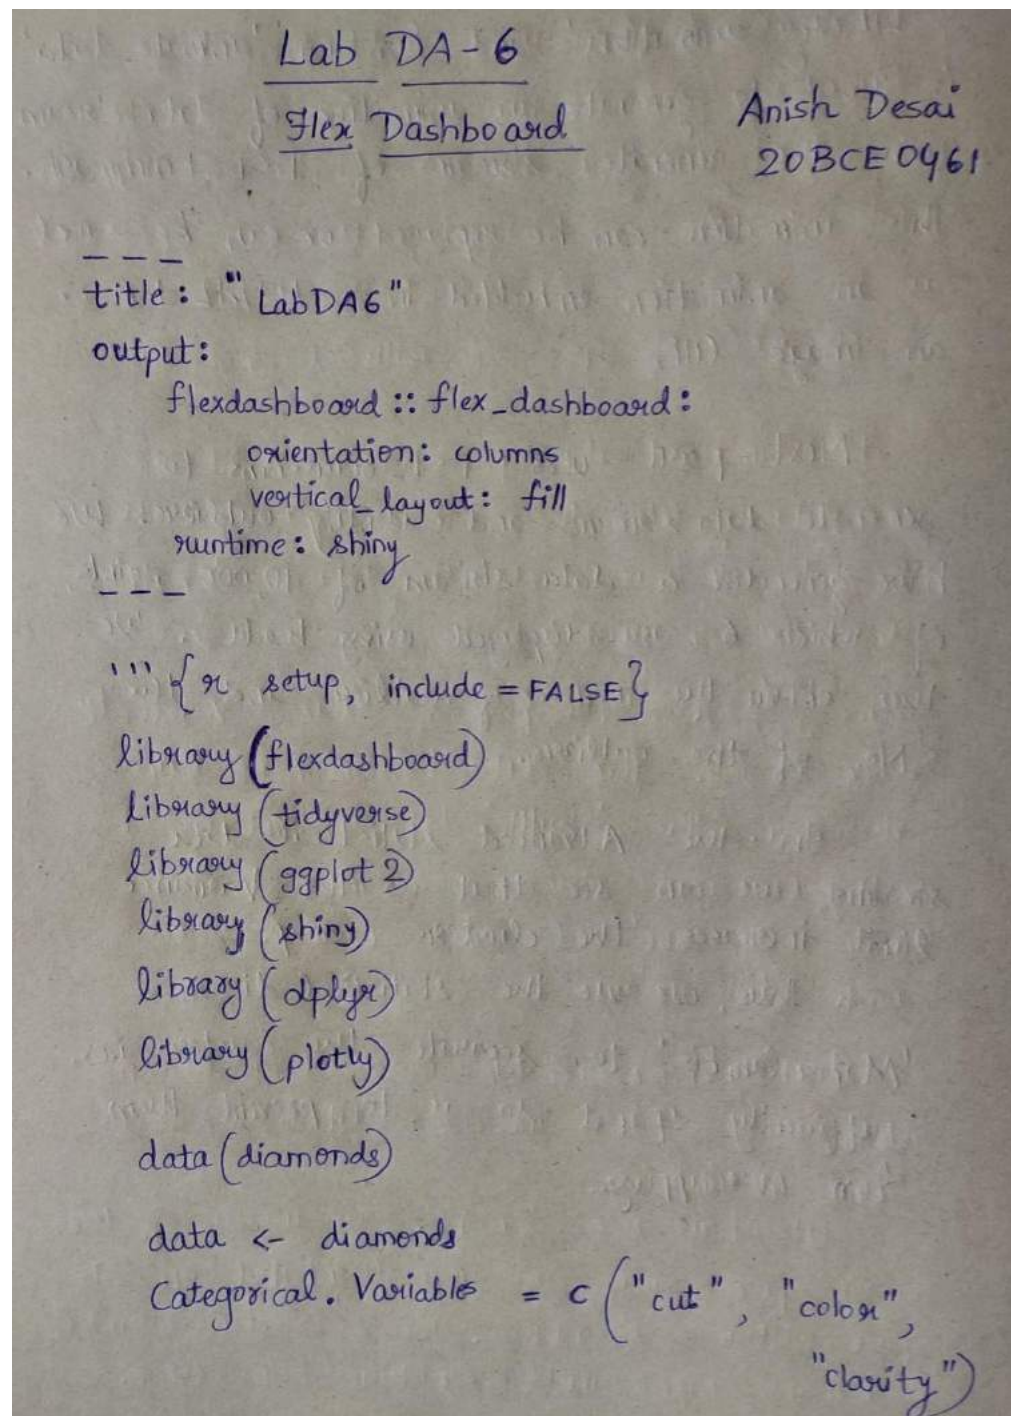 Lab DA-6
Flex Dashboard
Anish Desai
20BCE0461
---
title: "LabDA6"
output:
flexdashboard :: flex_dashboard:
orientation: columns
vertical_layout: fill
runtime: shiny
---
''' {r setup, include = FALSE}
library (flexdashboard)
library (tidyverse)
library (ggplot2)
library (shiny)
library (dplyr)
library (plotly)
data (diamonds)
data <- diamonds
Categorical. Variables = c ("cut", "color",
"clarity")